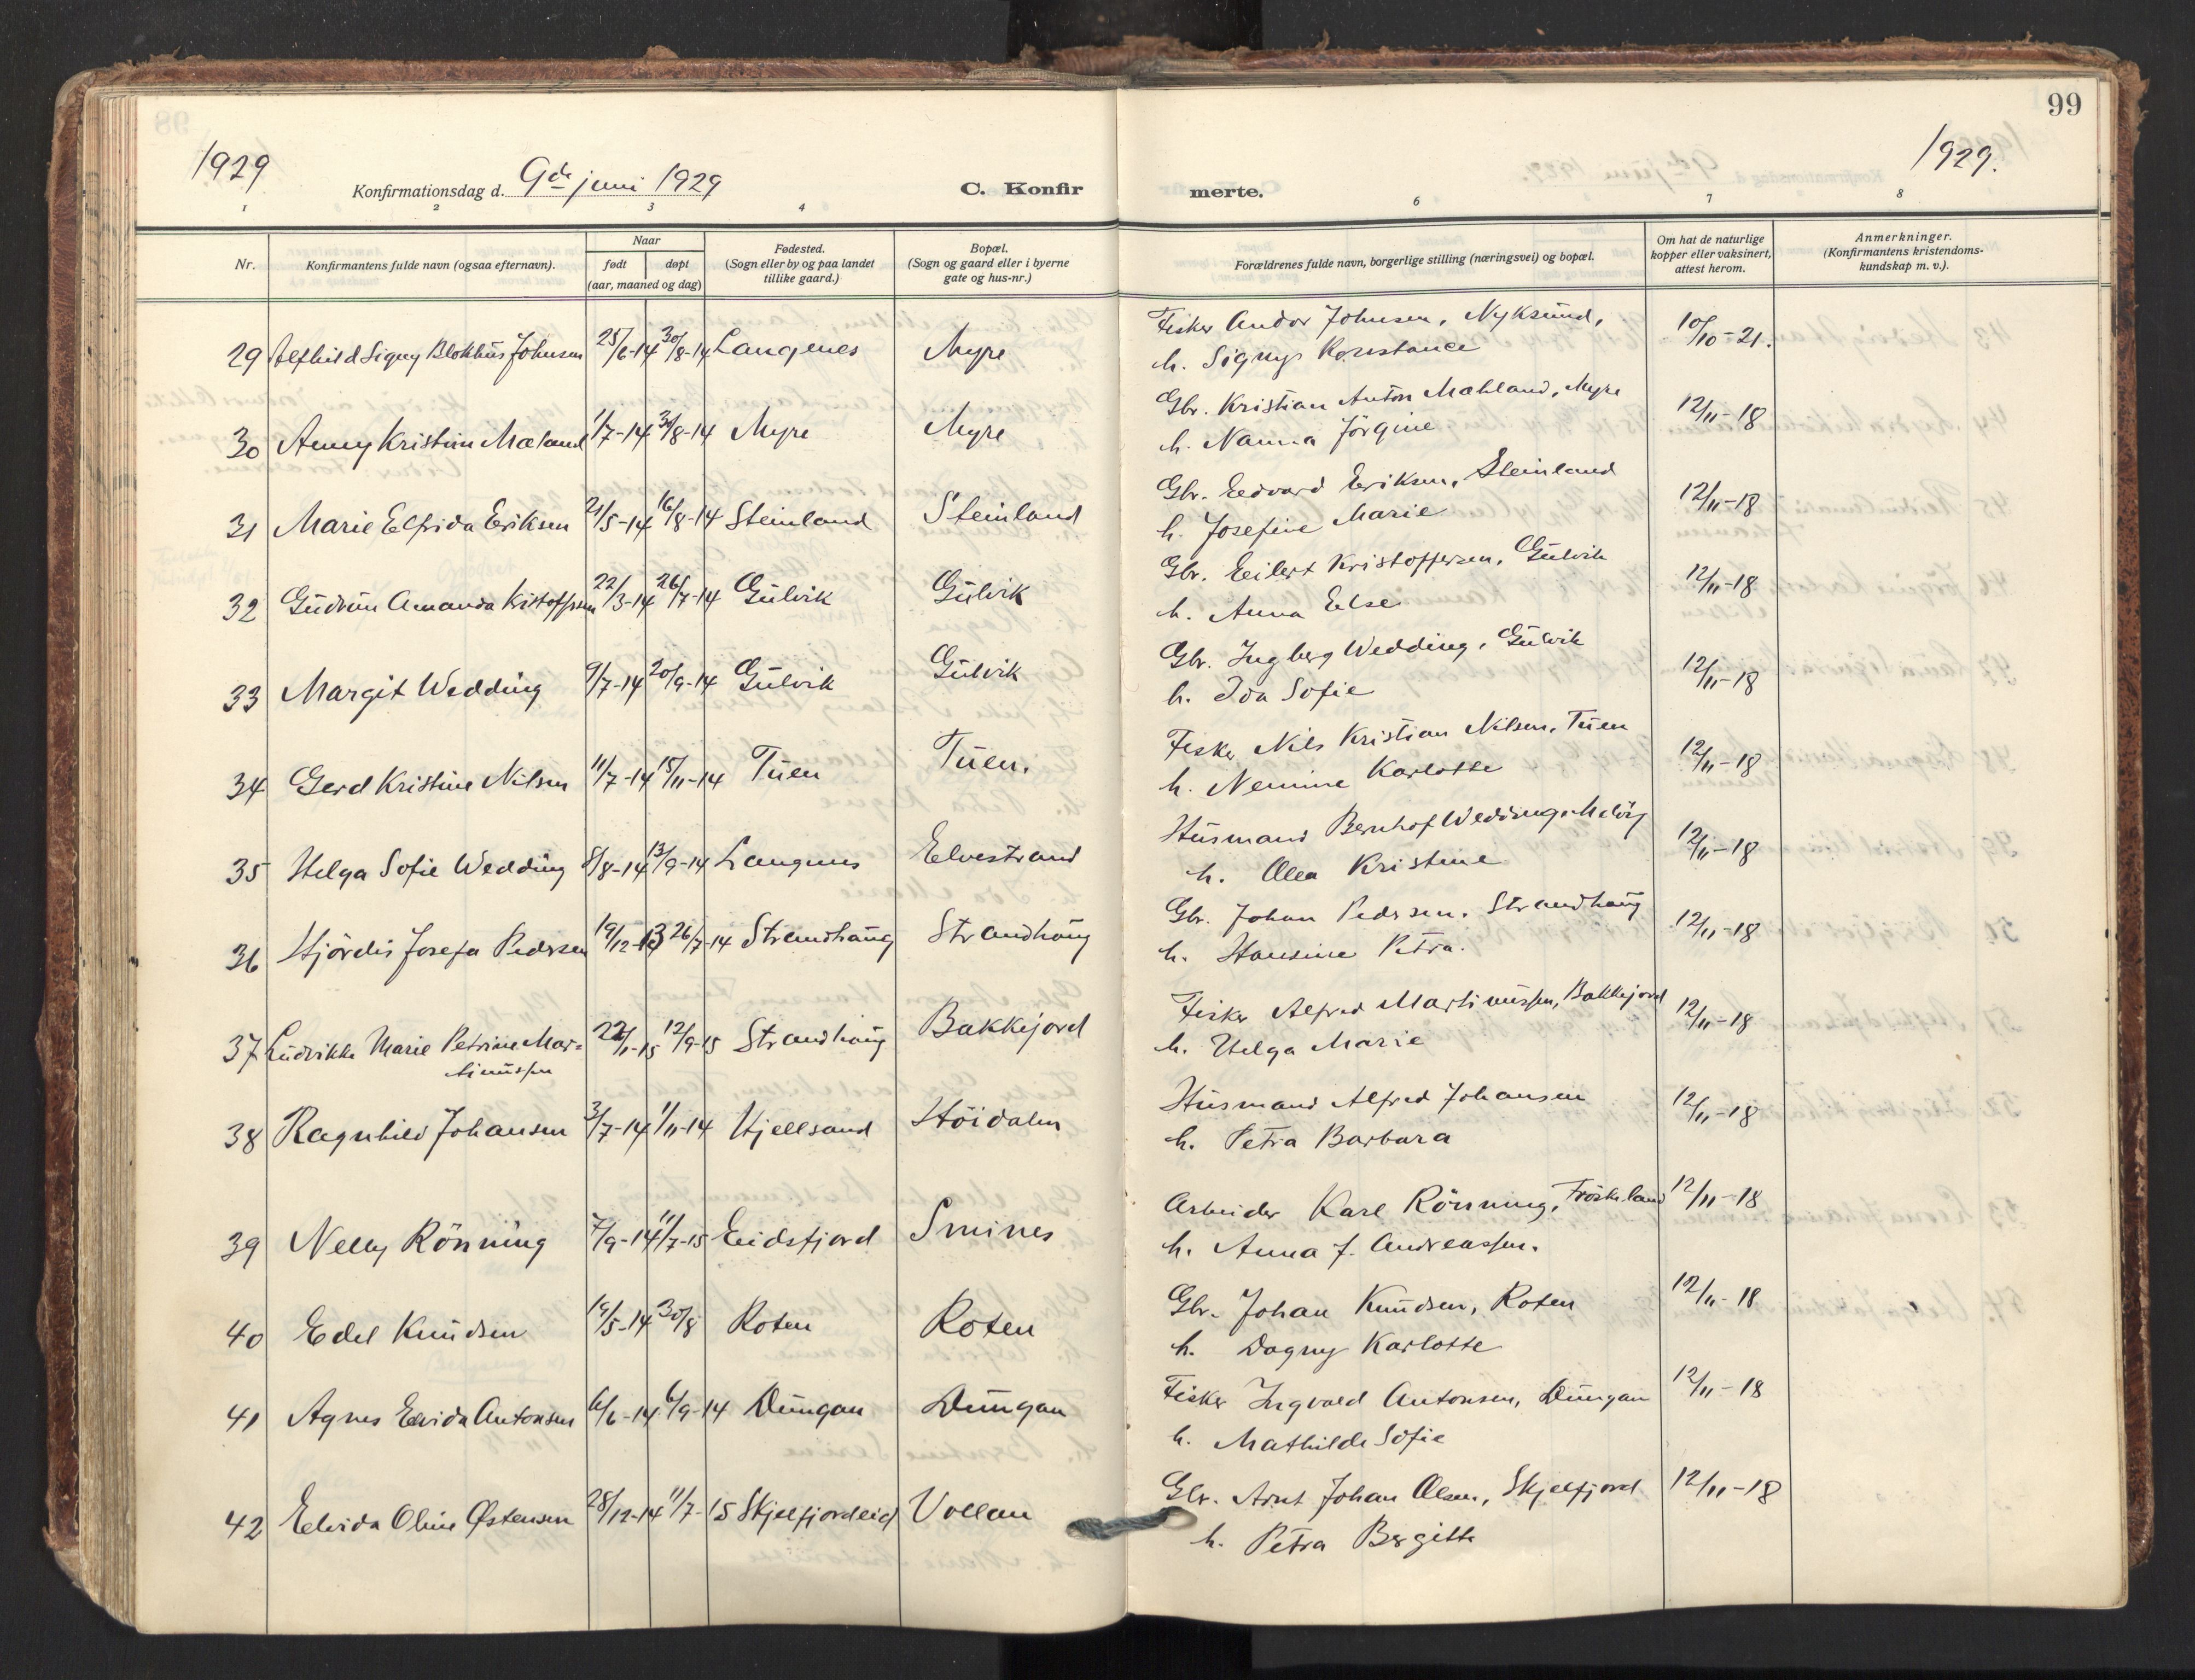 1929
Konfirmationsdag d. 9de juni 1929
C. Konfirmerte.
1929.
99
1 2 3 4 6 7 8
Nr.
Konfirmantens fulde navn (ogsaa efternavn).
Naar
født døpt
(aar, maaned og dag)
Fødested.
(Sogn eller by og paa landet
tillike gaard.)
Bopæl.
(Sogn og gaard eller i byerne
gate og hus-nr.)
Forældrenes fulde navn, borgerlige stilling (næringsvei) og bopæl.
Om hat de naturlige
kopper eller vaksinert,
attest herom.
Anmerkninger.
(Konfirmantens kristendoms-
kundskap m. v.).
29 Alfhild Signy Blokhus Johnsen 25/6-14 30/8-14 Langenes Myre Fisker Andor Johnsen, Nyksund, 10/10-21.
h. Signy Konstance
30 Anny Kristine Mæland 1/7-14 30/8-14 Myre Myre Gbr. Kristian Anton Mæhland, Myre 12/11-18
h. Nanna Jörgine
31 Marie Elfrida Eriksen 21/5-14 16/8-14 Steinland Steinland Gbr. Edvard Eriksen, Steinland 12/11-18
h. Josefine Marie
32 Gudrun Amanda Kristoffersen 22/3-14 26/7-14 Gulvik Gulvik Gbr. Eilert Kristoffersen, Gulvik 12/11-18
h. Anna Else
33 Margit Wedding 9/7-14 20/9-14 Gulvik Gulvik Gbr. Ingberg Wedding, Gulvik 12/11-18
h. Ida Sofie
34 Gerd Kristine Nilsen 11/7-14 15/11-14 Tuen Tuen. Fisker Nils Kristian Nilsen, Tuen 12/11-18
h. Nemine Karlotte
35 Helga Sofie Wedding 8/8-14 13/9-14 Langenes Elvestrand Husmand Bernhof Wedding, 12/11-18
h. Olea Kristine
36 Hjördis Josefa Pedersen 19/12-13 26/7-14 Strandhaug Strandhaug Gbr. Johan Pedersen, Strandhaug 12/11-18
h. Hansine Petra.
37 Ludvikke Marie Petrine Mar= 22/1-15 12/9-15 Strandhaug Bakkejord Fisker Alfred Martinussen, Bakkejord 12/11-18
tinussen h. Helga Marie
38 Ragnhild Johansen 3/7-14 1/11-14 Kjellsand Höidalen Husmand Alfred Johansen 12/11-18
h. Petra Barbara
39 Nelly Rönning 7/9-14 11/7-15 Eidsfjord Smines Arbeider Karl Rönning, Fröskeland 12/11-18
h. Anna J. Andreassen.
40 Edel Knudsen 19/5-14 30/8 Roten Roten Gbr. Johan Knudsen, Roten 12/11-18
h. Dagny Karlotte
41 Agnes Elvida Antonsen 6/6-14 6/9-14 Dungan Dungan Fisker Ingvald Antonsen, Dungan 12/11-18
h. Mathilde Sofie
42 Elvida Oline Østensen 28/12-14 11/7-15 Skjelfjordeid Vollan Gbr. Arnt Johan Olsen, Skjelfjord 12/11-18
h. Petra Bergitte